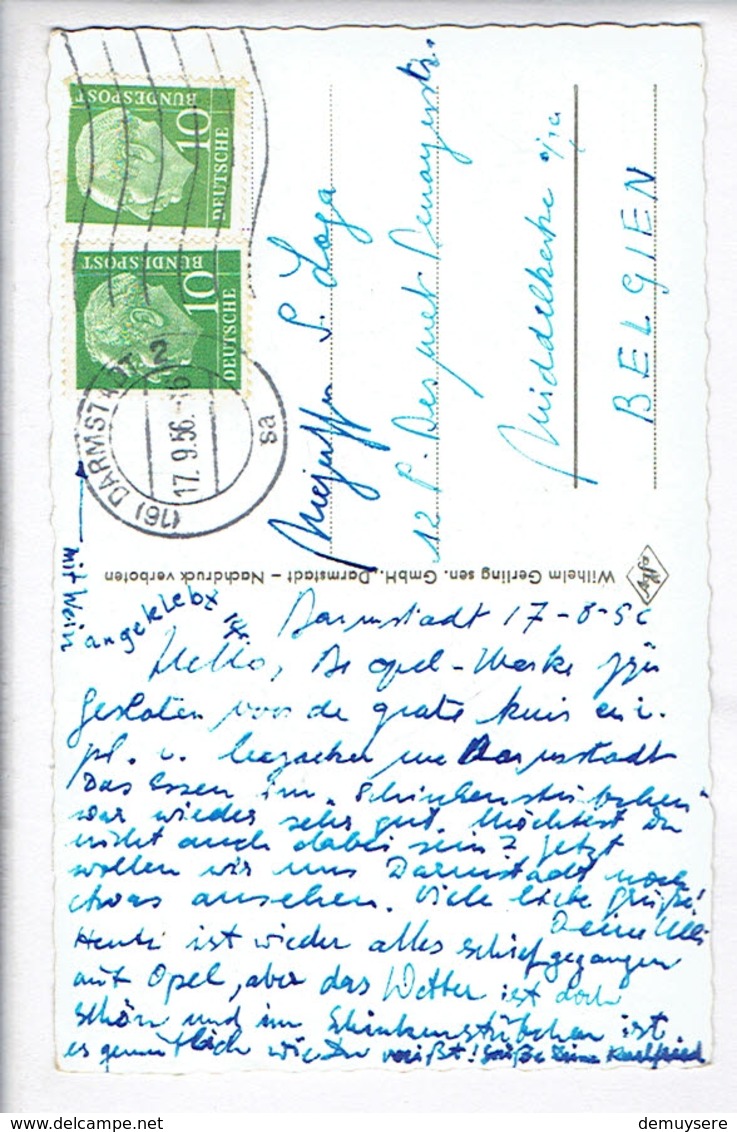 DEUTSCHE
BUNDESPOST
10
DEUTSCHE
BUNDESPOST
10
(16) DARMSTADT 2
17. 9.56.
sa
S. Loga
12 P. Desmet
Middelkerke
BELGIEN
Wilhelm Gerling sen. GmbH., Darmstadt – Nachdruck verboten
mit Wein
angeklebt
Darmstadt 17-8-56
Hello, De Opel-Werke zijn
gesloten voor de grote kuis en i.
pl. v. bezoeken we Darmstadt
Das Essen im „Schinkenstübchen"
war wieder sehr gut. Möchtest Du
nicht auch dabei sein? Jetzt
wollen wir uns Darmstadt noch
etwas ansehen. Viele liebe Grüße!
Deine
Heute ist wieder alles schiefgegangen
mit Opel, aber das Wetter ist doch
schön und im Schinkenstübchen ist
es gemütlich wie Du weißt! Grüße Deine Karlfried
demuysere